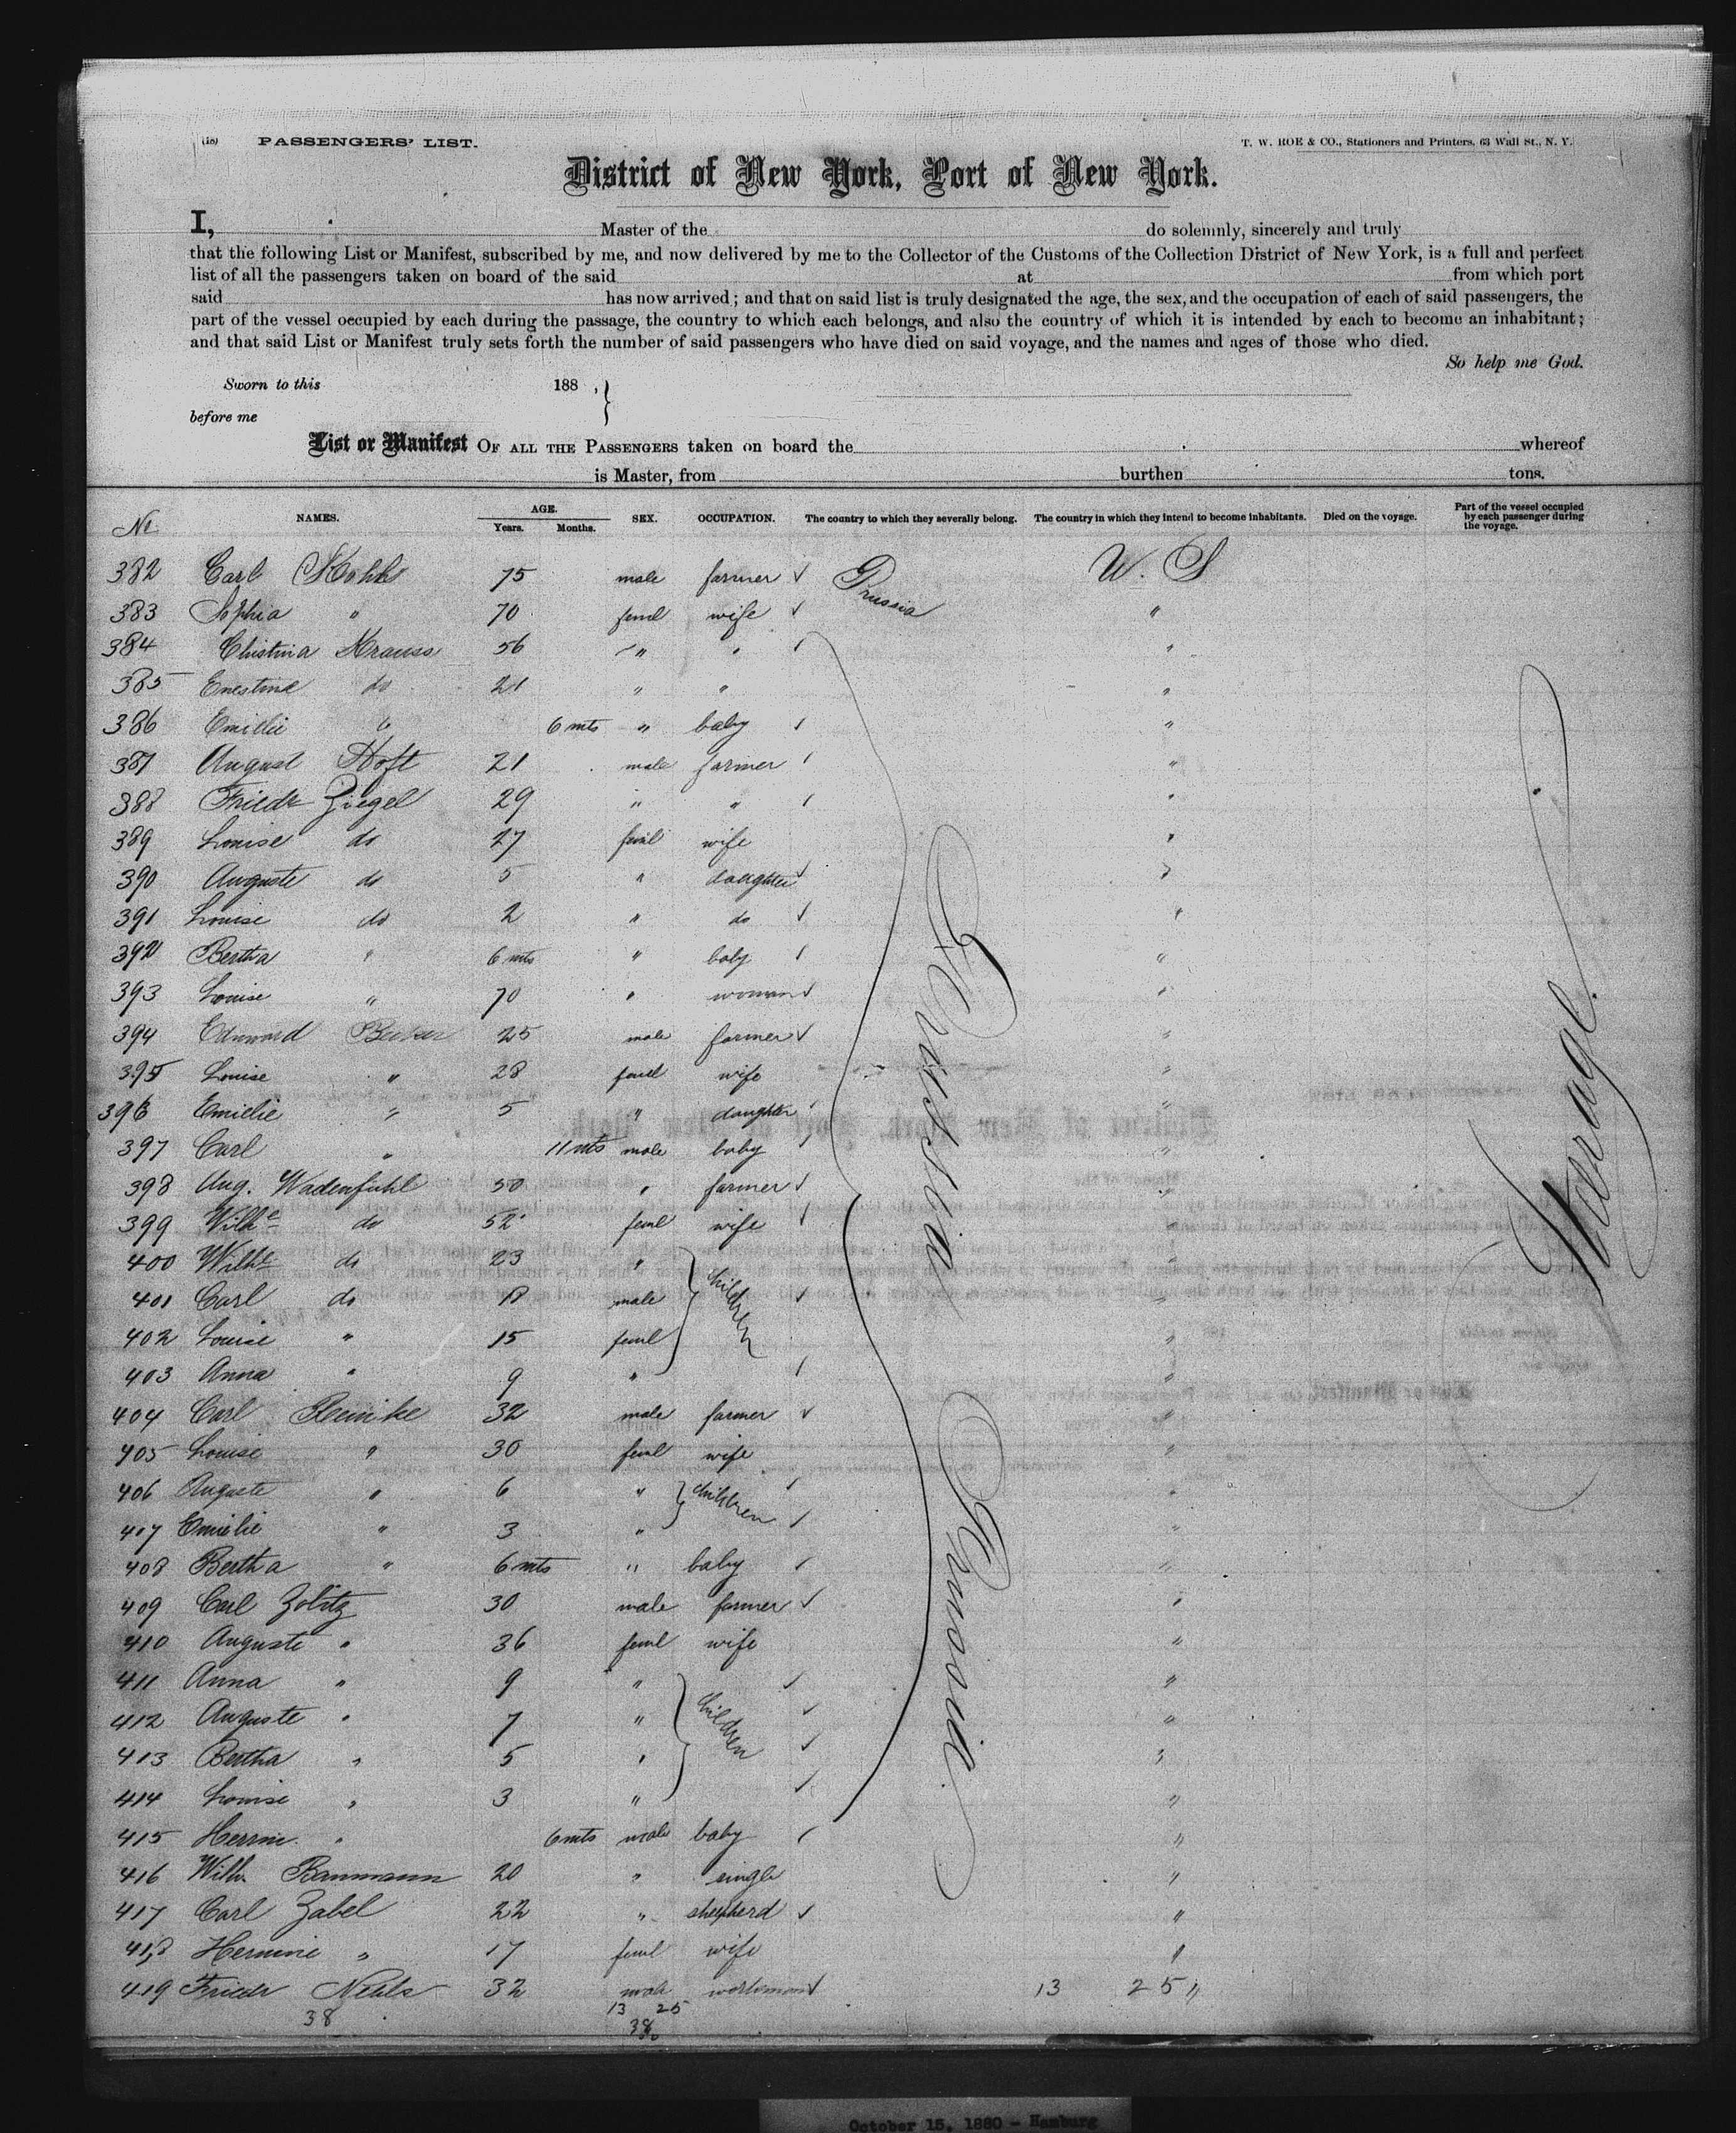 (18) PASSENGERS' LIST. T. W. ROE & CO., Stationers and Printers, 63 Wall St., N. Y.
District of New York, Port of New York.
I, Master of the do solemnly, sincerely and truly
that the following List or Manifest, subscribed by me, and now delivered by me to the Collector of the Customs of the Collection District of New York, is a full and perfect
list of all the passengers taken on board of the said at from which port
said has now arrived; and that on said list is truly designated the age, the sex, and the occupation of each of said passengers, the
part of the vessel occupied by each during the passage, the country to which each belongs, and also the country of which it is intended by each to become an inhabitant;
and that said List or Manifest truly sets forth the number of said passengers who have died on said voyage, and the names and ages of those who died.
So help me God.
Sworn to this 188 ,
before me
List or Manifest OF ALL THE PASSENGERS taken on board the whereof
is Master, from burthen tons.
No. NAMES. AGE. Years. Months. SEX. OCCUPATION. The country to which they severally belong. The country in which they intend to become inhabitants. Died on the voyage. Part of the vessel occupied by each passenger during the voyage.
382 Carl 75 male farmer Prussia U. S
383 Sophia " 70 feml wife "
384 Christina Krauss 56 " " "
385 Ernestine do 21 " " "
386 Emilie " 6 mts " baby "
387 August Hoft 21 male farmer "
388 Friedr Ziegel 29 " " "
389 Louise do 27 feml wife "
390 Auguste do 5 " daughter "
391 Louise do 2 " do "
392 Bertha " 6 mts " baby "
393 Louise " 70 " woman "
394 Edmward 25 male farmer "
395 Louise " 28 feml wife "
396 Emilie " 5 " daughter "
397 Carl " 11 mts male baby "
398 Aug. Wadenfuhl 50 " farmer "
399 Wilhe do 52 feml wife "
400 Wilhe do 23 " children "
401 Carl do 18 male "
402 Louise " 15 feml "
403 Anna " 9 " "
404 Carl Reinike 32 male farmer "
405 Louise " 30 feml wife "
406 Auguste " 6 " children "
407 Emilie " 3 " "
408 Bertha " 6 mts " baby "
409 Carl Zolitz 30 male farmer "
410 Auguste " 36 feml wife "
411 Anna " 9 " children "
412 Auguste " 7 " "
413 Bertha " 5 " "
414 Louise " 3 " "
415 Hermi. " 6 mts male baby "
416 Wilh Baumann 20 " single "
417 Carl Zabel 22 " shepherd "
418 Hermine " 17 feml wife "
419 Friedr Nehls 32 male workman 13 25 "
38 13 25
38
Prussia
Steerage
October 15, 1880 - Hamburg